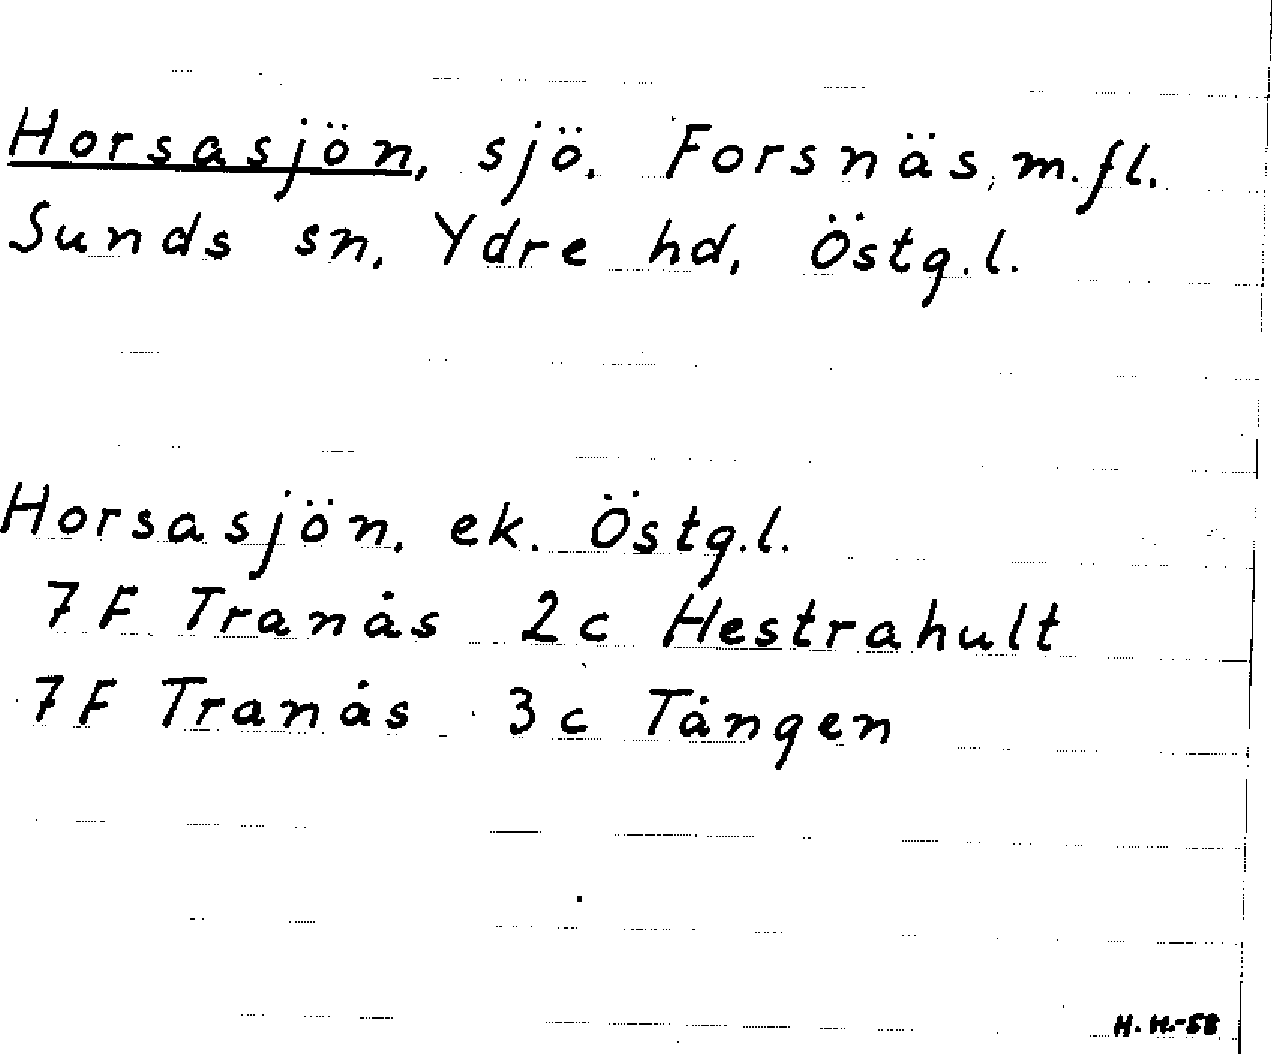 Horsasjön, sjö. Forsnäs, m.fl.
Sunds sn, Ydre hd, Östg.l.
Horsasjön, ek. Östg.l.
7F Tranås 2c Hestrahult
7F Tranås 3c Tången
H. H.-58